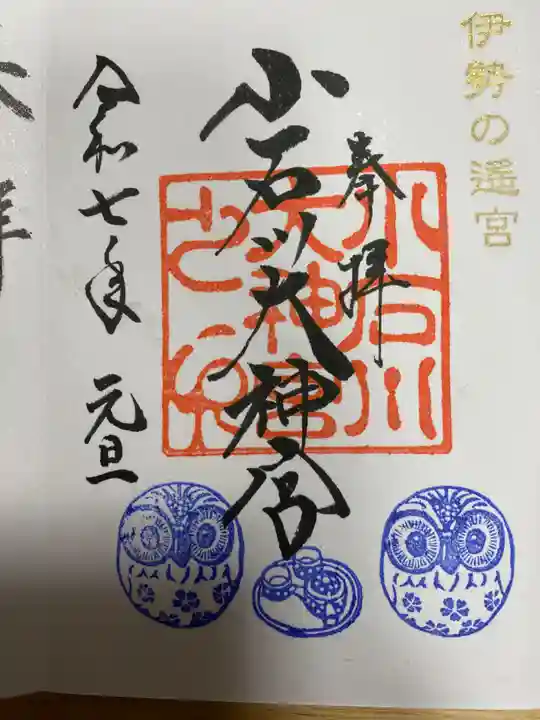 伊勢の遥宮
奉拝
小石川大神宮
小石川
大神宮
令和七年 元旦